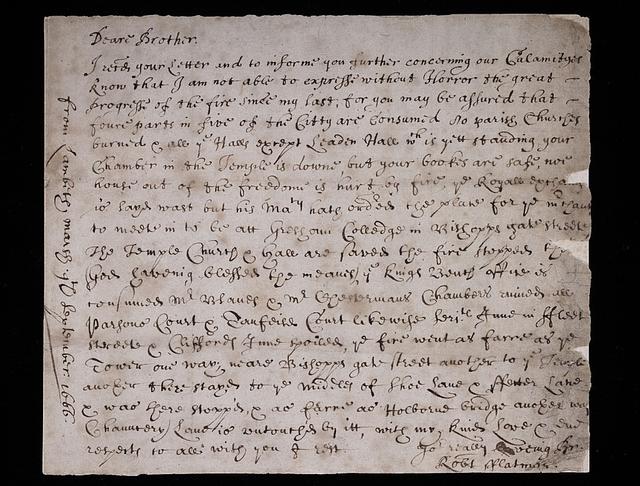 Deare Brother.
I recd your Letter and to informe you further concerning our Calamityes
know that I am not able to expresse without Horror the great
progresse of the fire since my last, for you may be assured that
foure parts in five of the Citty are consumed No parish Churches
burned & all ye Halls except Leaden Hall wch is yett standing your
Chamber in the Temple is downe but your bookes are safe, noe
house out of the freedome is hurt by fire, ye Royall exchan
is layd wast but his Maty hath ordred the place for ye m
to meete in to be att Gresham Colledge in Bishopps gate streete
The Temple Church & Hall are saved the fire stopped
God haveing blessed the meanes, ye Kings Bench office is
consumed Mr & Mr Chestermans Chambers ruined all
Parsons Court & Tanfeild Court likewise Serjts Inne in ffleet
streete & Cliffords Inne spoiled, ye fire went as farre as ye
Tower one way, neare Bishopps gate street another to ye Temple
another there stayed to ye middle of Shoe Lane & ffetter Lane
& was there stopped, & as farre as Holborne bridge another way
Chauncery Lane is untouched by itt, with my kind Love &
respects to all with you I rest
yor really Loveing Br
Robt fflatman
from Lambeth marsh 9th September. 1666